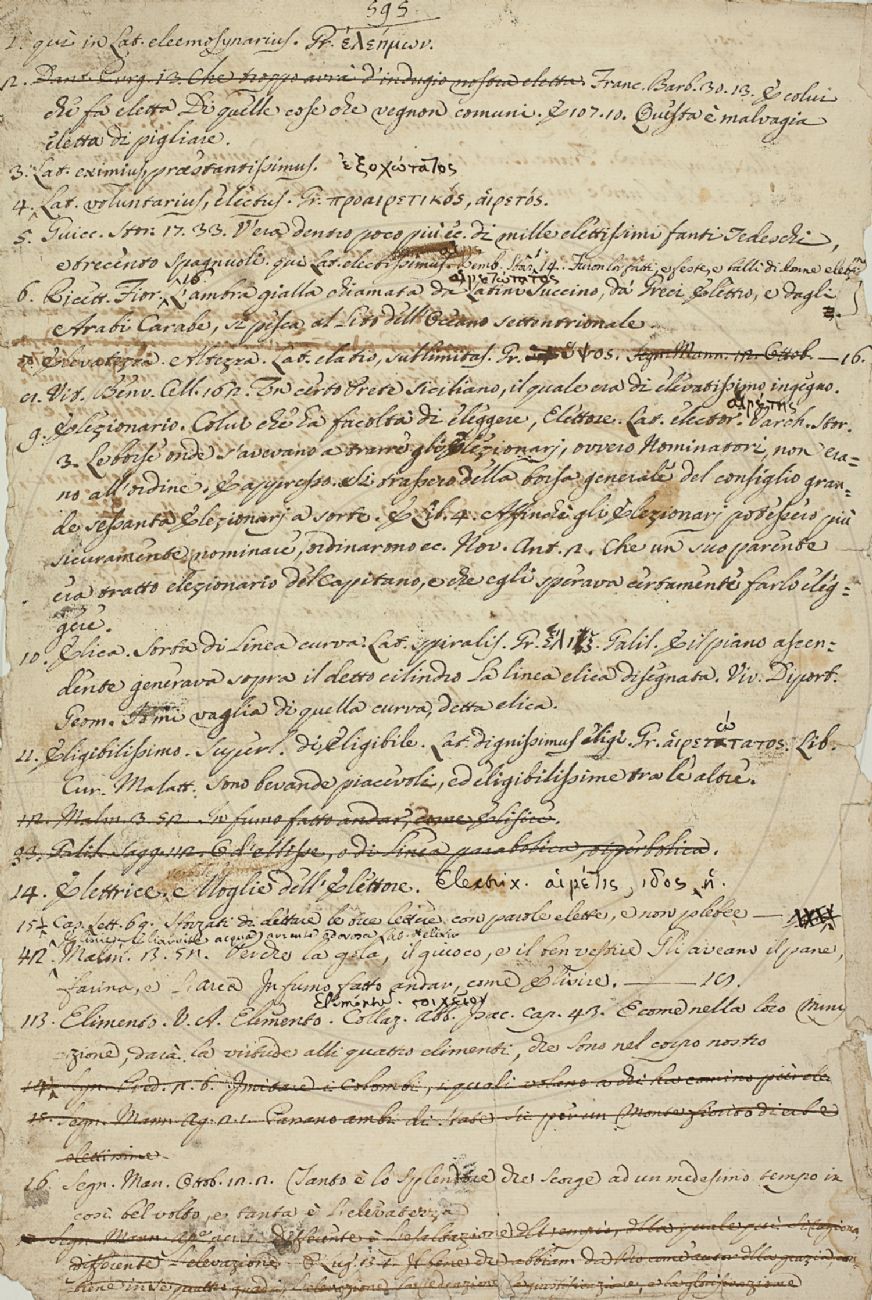 595
1. qui in Lat. eleemosynarius. Gr. ἐλεήμων.
2. Dant. Purg. 13. Che troppo avrà d'indugio nostra eletta. Franc. Barb. 30. 13. E colui
che fa eletta Di quelle cose che vegnon comuni. E 107. 10. Questa è malvagia
eletta di pigliare.
3. Lat. eximius, præstantissimus. ἐξοχώτατος
4. Lat. voluntarius, electus. Gr. προαιρετικός, αἱρετός.
5. Guicc. Stor. 17. 33. V'era dentro poco più ec. di mille elettissimi fanti Tedeschi,
e trecento spagnuoli. qui Lat. electissimus. Bemb. Stor. 14. Furon la fatti, e feste, e balli di donne elettissime
αἱρετώτατος
6. Ricett. Fior. 16 L'ambra gialla chiamata da Latini Succino, da' Greci Elettro, e dagli
Arabi Carabe, si pesca al Lito dell'Oceano settentrionale
Elevatezza. Altezza. Lat. elatio, sublimitas. Gr. ὕψος. Segn. Mann. 12. Ottob. — 16.
Vit. Benv. Cell. 162. Un certo Prete Siciliano, il quale era di elevatissimo ingegno.
αἱρέτης
9. Elezionario. Colui che ha facoltà di eleggere, Elettore. Lat. elector. Varch. Stor.
3. Le borse onde s'avevano a trarre gli Elezionarj, ovvero Nominatori, non era=
no all'ordine. E appresso. Si trassero della borsa generale del consiglio gran=
de sessanta Elezionarj a sorte. E Lib. 4. Affinchè gli Elezionarj potessero più
sicuramente nominare, ordinarono ec. Nov. Ant. 2. Che un suo parente
era tratto elezionario del Capitano, e che egli sperava certamente farlo eleg=
gere.
10. Elica. Sorta di Linea curva. Lat. spiralis. Gr. ἕλιξ. Galil. E il piano ascen=
dente generava sopra il detto cilindro la linea elica disegnata. Viv. Diport.
Geom. mi vaglia di quella curva, detta elica.
11. Eligibilissimo. Superl. di Eligibile. Lat. dignissimus eligi. Gr. αἱρετώτατος. Lib.
Cur. Malatt. Sono bevande piacevoli, ed eligibilissime tra le altre.
12. Malm. 3. 52. In fumo fatto andar, come Elisire.
33. Galil. Sagg. 12. O d'ellisse, o di linea parabolica, o iperbolica.
14. Elettrice. Moglie dell'Elettore. Electrix. αἱρέτις, ιδος, ἡ.
15. Cap. Lett. 69. Sforzati di dettare le tue lettere con parole elette, e non plebee —
12. Malm. 3. 52. Perchè la gola, il giuoco, e il ben vestire Gli aveano il pane,
farina, e l'arca In fumo fatto andar, come Elisire. —
Elimento. στοιχεῖον
113. Elimento. V. A. Elimento. Collaz. Abb. Isac. Cap. 43. E come nella loro
zione, darà la virtude alli quattro elimenti, che sono nel corpo nostro
14. Pred. 2. 6. Imitare i Colombi, i quali volano a chi ha comino più ele
15. Segn. Mann. Ag. 2. 1. Passano ambi di State Su per un Monte fiorito di erbe
elettissime.
16. Segn. Man. Ottob. 12. 2. Tanto è lo splendore che scorge ad un medesimo tempo in
così bel volto, e tanta è l'elevatezza